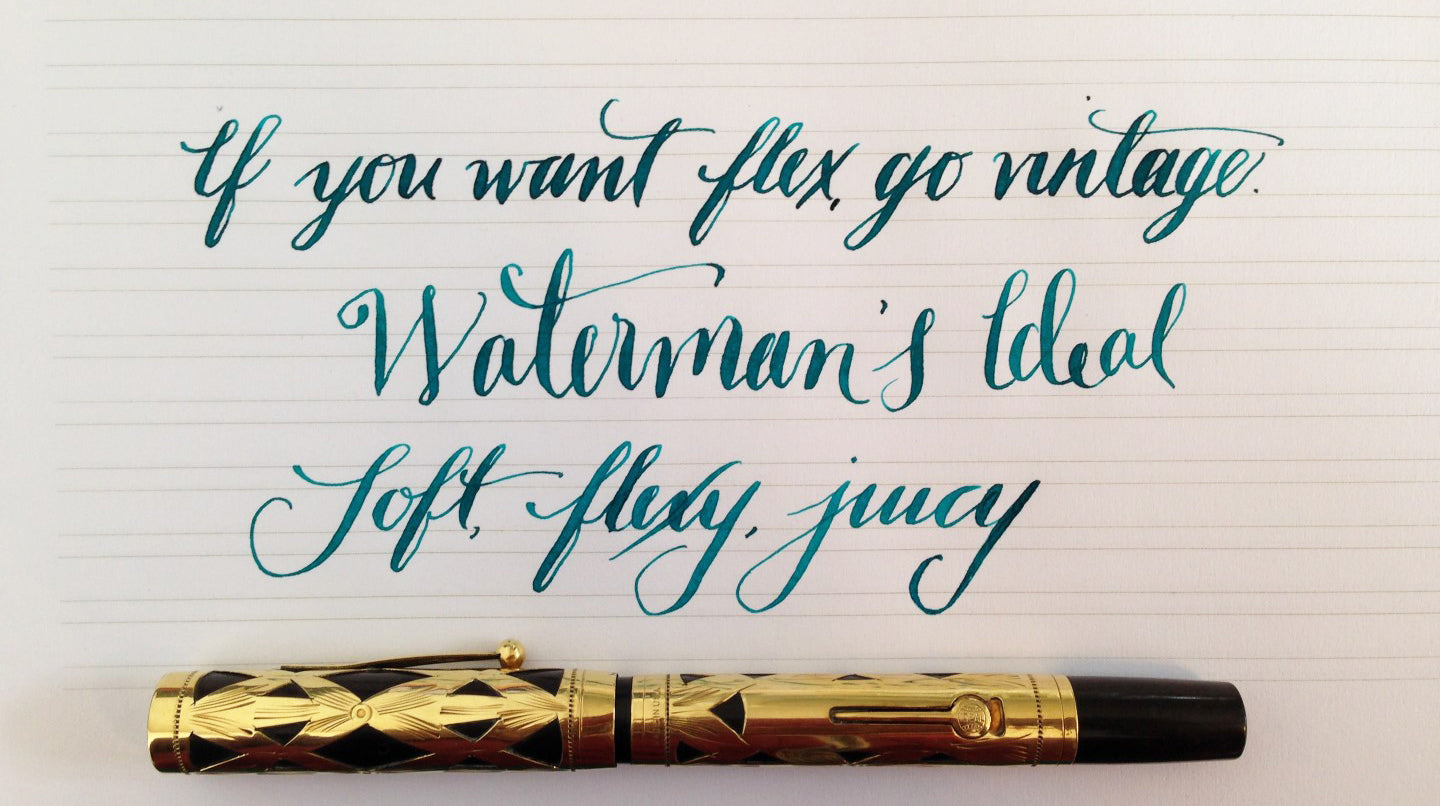 If you want flex, go vintage.
Waterman's Ideal
Soft, flexy, juicy